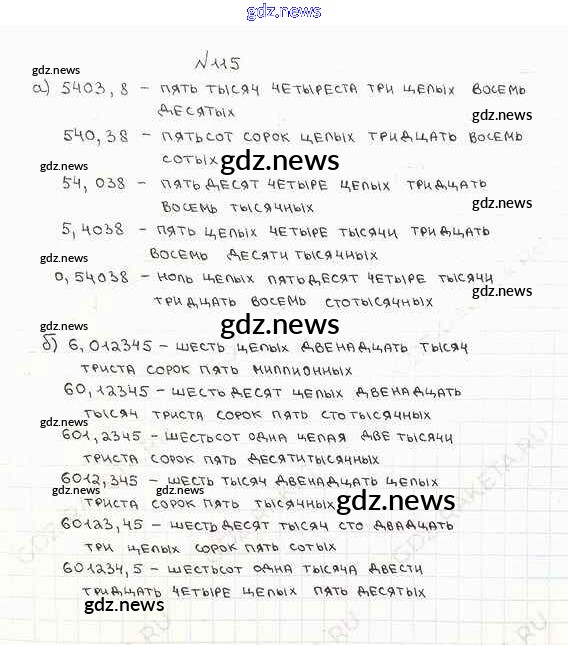 gdz.news
№115
gdz.news
а) 5403,8 – пять тысяч четыреста три целых восемь
десятых
gdz.news
540,38 – пятьсот сорок целых тридцать восемь
сотых gdz.news
gdz.news
54,038 – пятьдесят четыре целых тридцать
восемь тысячных
gdz.news
5,4038 – пять целых четыре тысячи тридцать
восемь десятитысячных
gdz.news
0,54038 – ноль целых пятьдесят четыре тысячи
тридцать восемь стотысячных
gdz.news
gdz.news
б) 6,012345 – шесть целых двенадцать тысяч
триста сорок пять миллионных
60,12345 – шестьдесят целых двенадцать
тысяч триста сорок пять стотысячных
gdz.news
601,2345 – шестьсот одна целая две тысячи
триста сорок пять десятитысячных
6012,345 – шесть тысяч двенадцать целых
gdz.news gdz.news
триста сорок пять тысячных gdz.news
60123,45 – шестьдесят тысяч сто двадцать
три целых сорок пять сотых
601234,5 – шестьсот одна тысяча двести
тридцать четыре целых пять десятых
gdz.news